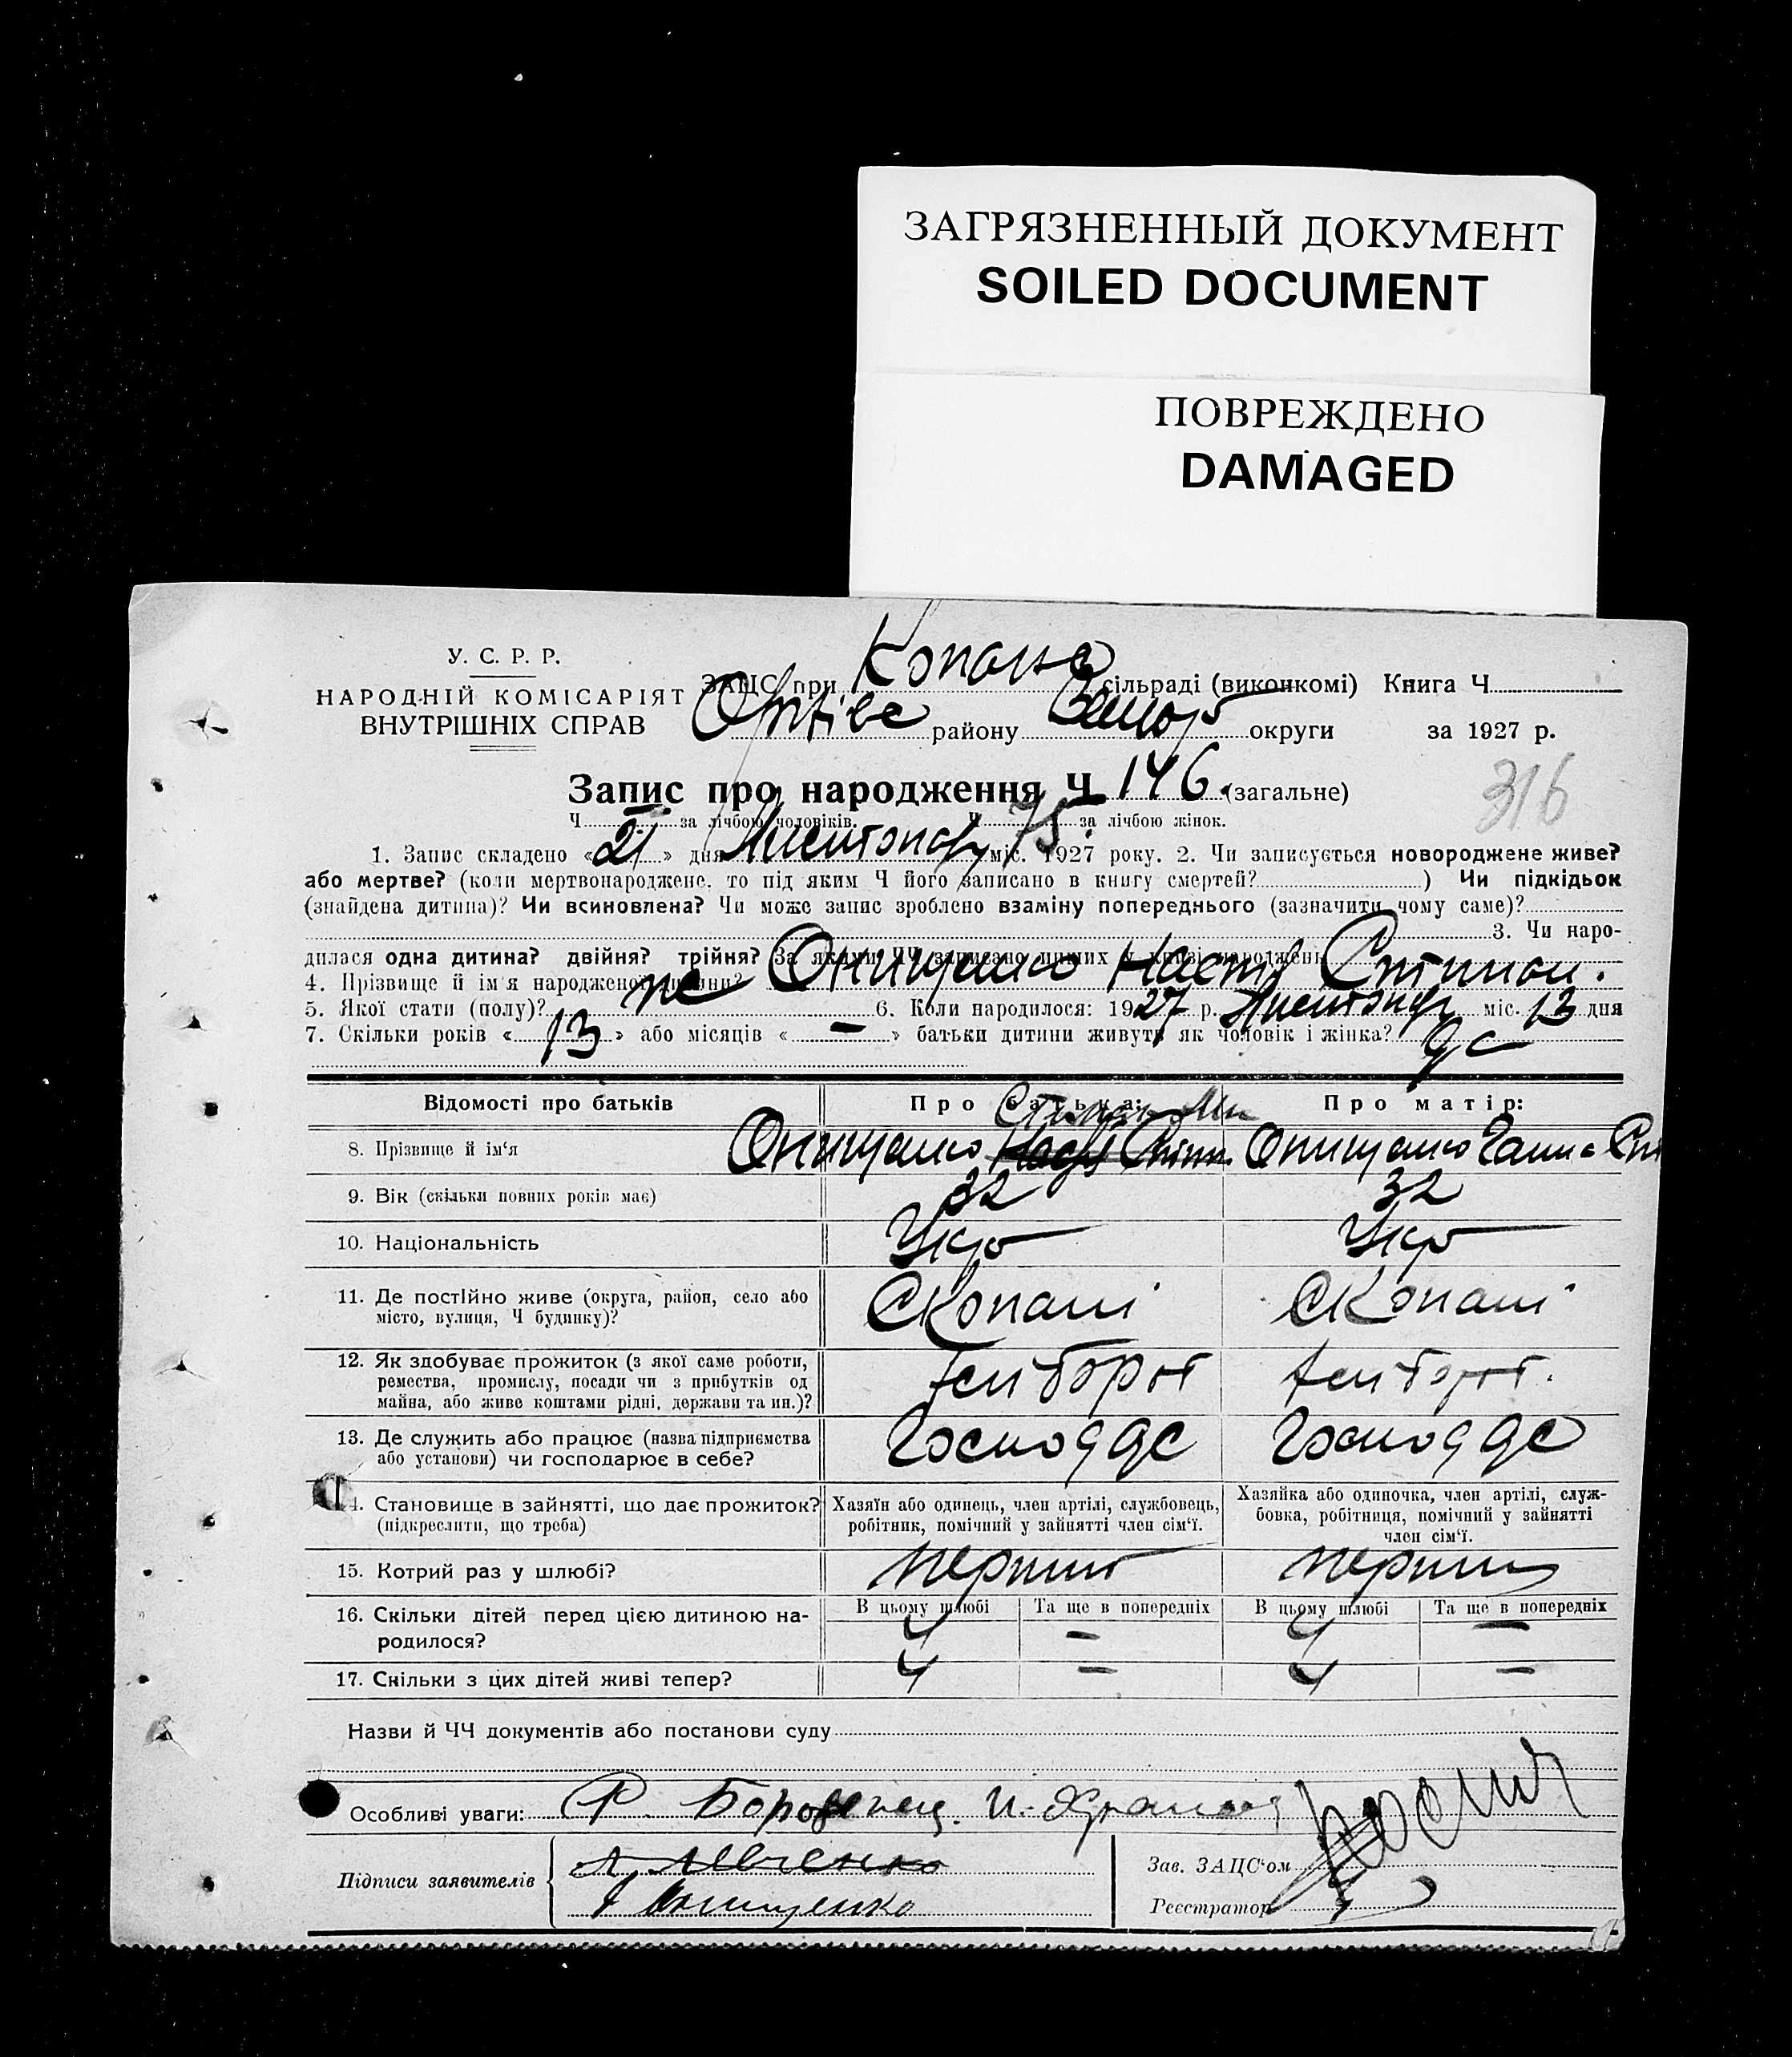 ЗАГРЯЗНЕННЫЙ ДОКУМЕНТ
SOILED DOCUMENT
ПОВРЕЖДЕНО
DAMAGED
У. С. Р. Р.
НАРОДНІЙ КОМІСАРІЯТ
ВНУТРІШНІХ СПРАВ
ЗАЦС при сільраді (виконкомі) Книга Ч.
району округи за 1927 р.
Запис про народження Ч 146. (загальне)
316
Ч. за лічбою чоловіків. Ч. 75 за лічбою жінок.
1. Запис складено « 21 » дня міс. 1927 року. 2. Чи записується новороджене живе?
або мертве? (коли мертвонароджене, то під яким Ч його записано в книгу смертей? ) Чи підкідьок
(знайдена дитина)? Чи всиновлена? Чи може запис зроблено взаміну попереднього (зазначити чому саме)?
3. Чи наро-
дилася одна дитина? двійня? трійня? За якими ЧЧ записано инших у книзі народжень
4. Прізвище й ім'я народженої дитини? Онищенко
5. Якої стати (полу)? 6. Коли народилося: 1927 р. міс. 13 дня
7. Скільки років « 13 » або місяців « — » батьки дитини живуть як чоловік і жінка?
Відомості про батьків Про батька: Про матір:
8. Прізвище й ім'я Онищенко Онищенко
9. Вік (скільки повних років має) 32 32
10. Національність Укр Укр
11. Де постійно живе (округа, район, село або
місто, вулиця, Ч будинку)? С Копані С Копані
12. Як здобуває прожиток (з якої саме роботи,
ремества, промислу, посади чи з прибутків од
майна, або живе коштами рідні, держави та ин.)?
13. Де служить або працює (назва підприємства
або установи) чи господарює в себе?
14. Становище в зайнятті, що дає прожиток?
(підкреслити, що треба)
Хазяїн або одинець, член артілі, службовець,
робітник, помічний у зайнятті член сім'ї.
Хазяйка або одиночка, член артілі, служ-
бовка, робітниця, помічний у зайнятті
член сім'ї.
15. Котрий раз у шлюбі?
16. Скільки дітей перед цією дитиною на-
родилося?
В цьому шлюбі Та ще в попередніх В цьому шлюбі Та ще в попередніх
4 — 4 —
17. Скільки з цих дітей живі тепер? 4 — 4 —
Назви й ЧЧ документів або постанови суду
Особливі уваги:
Підписи заявителів
Левченко
Онищенко
Зав. ЗАЦС'ом
Реєстратор